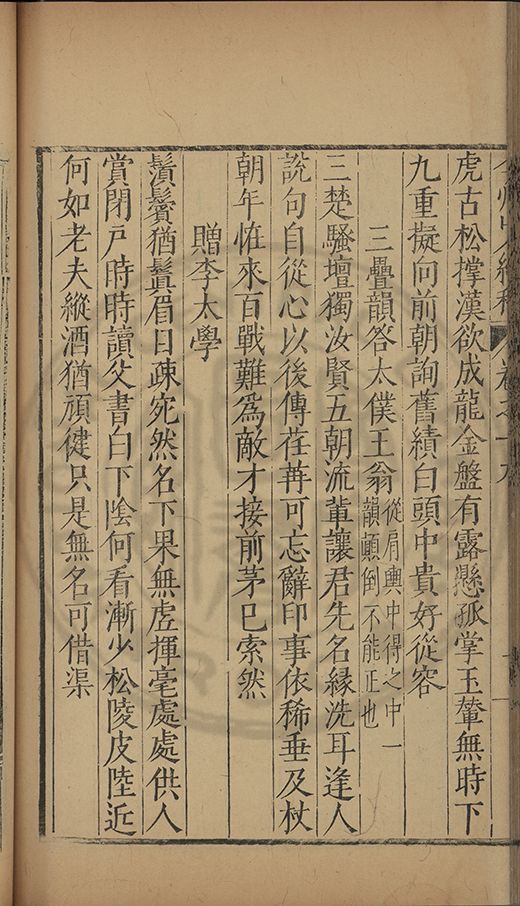 虎古松撑漢欲成龍金盤有露懸孤掌玉輦無時下
九重擬向前朝詢舊績白頭中貴好從容
三疊韻答太僕王翁從肩輿中得之中一韻顛倒不能正也
三楚騷壇獨汝賢五朝流輩讓君先名緣洗耳逢人
說句自從心以後傳荏苒可忘辭印事依稀垂及杖
朝年怪來百戰難為敵才接前茅已索然
贈李太學
鬚鬢猶鬒眉目疎宛然名下果無虛揮毫處處供人
賞閉戶時時讀父書白下陰何看漸少松陵皮陸近
何如老夫縱酒猶頑健只是無名可借渠